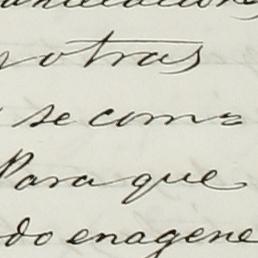 y otras
se com=
Para que
do enagene